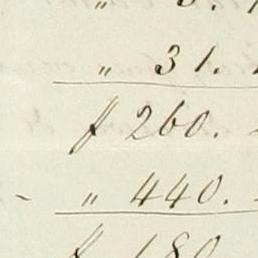 " 3.
" 31.
ƒ 260. -
- " 440. -
ƒ 180.